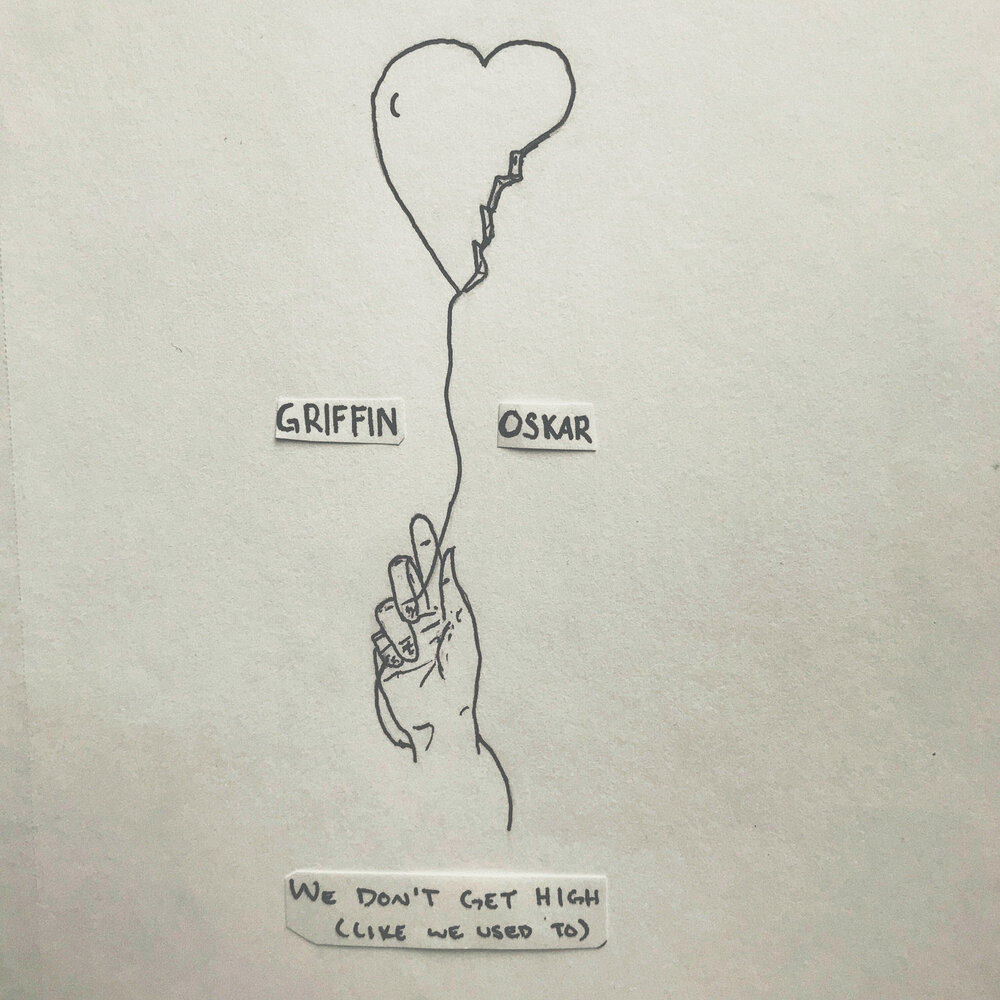 GRIFFIN OSKAR
WE DON'T GET HIGH
(LIKE WE USED TO)